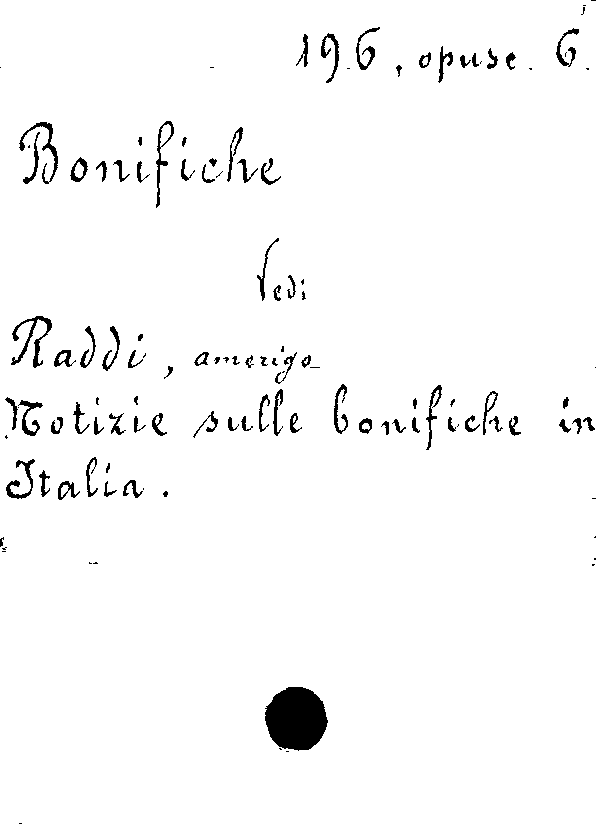 196, opusc. 6.
Bonifiche
Vedi
Raddi, amerigo
Notizie sulle bonifiche in
Italia.